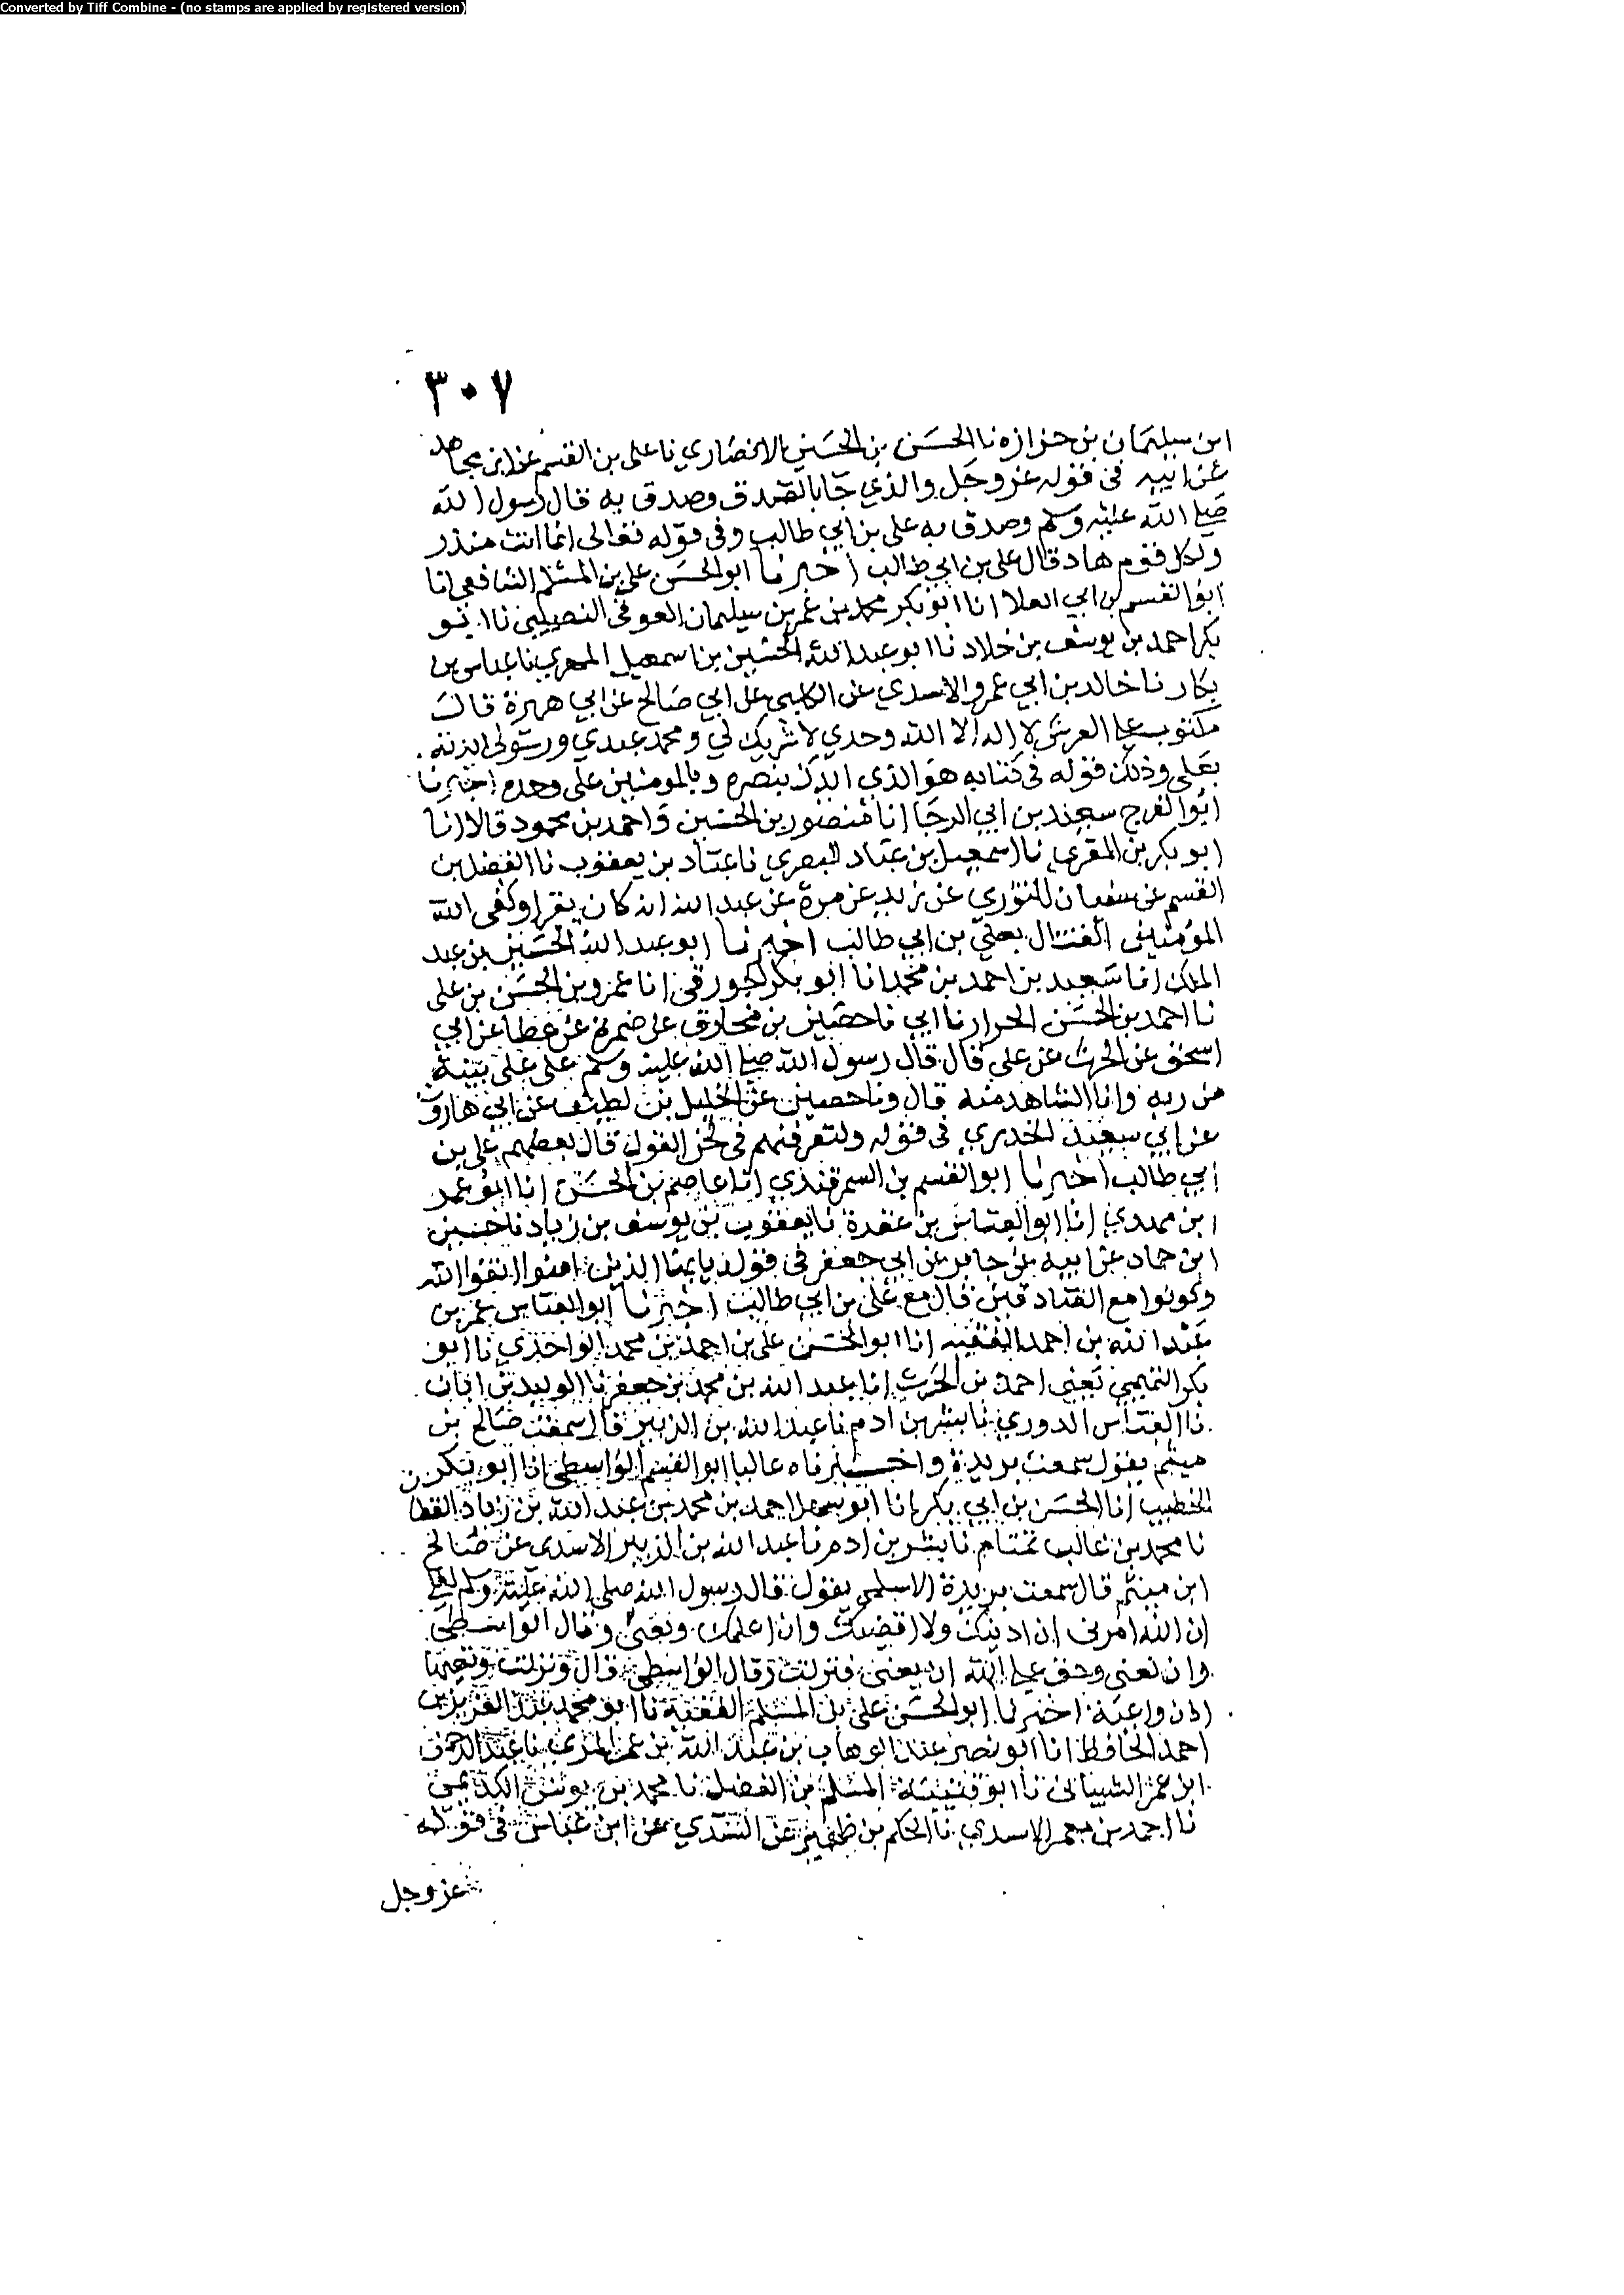 Converted by Tiff Combine - (no stamps are applied by registered version)
٣٠٧
ابن سليمان بن حزازه نا الحسن بن الحسين الانصاري نا علي بن القسم عن ابن مجاهد
عن ابيه في قوله عز وجل والذي جا بالصدق وصدق به قال رسول الله
صلى الله عليه وسلم وصدق به علي بن ابي طالب وفي قوله تعالى انما انت منذر
ولكل قوم هاد قال علي بن ابي طالب اخبرنا ابو الحسن علي بن المسلم الشافعي انا
ابو القسم بن ابي العلا انا ابو بكر محمد بن عمر بن سليمان العوفي النصيبي نا ابو
بكر احمد بن يوسف بن خلاد نا ابو عبد الله الحسين بن اسمعيل المهري نا عباس بن
بكار نا خالد بن ابي عمرو الاسدي عن الكلبي عن ابي صالح عن ابي هريرة قال
مكتوب على العرش لا اله الا الله وحدي لا شريك لي ومحمد عبدي ورسولي ايدته
بعلي وذلك قوله في كتابه هو الذي ايدك بنصره وبالمومنين علي وحده اخبرنا
ابو الفرج سعيد بن ابي الرجا انا منصور بن الحسين واحمد بن محمود قالا انا
ابو بكر بن المقري نا اسمعيل بن عباد البصري نا عباد بن يعقوب نا الفضل بن
القسم عن سفيان الثوري عن زبيد عن مرة عن عبد الله انه كان يقرا وكفى الله
المؤمنين القتال بعلي بن ابي طالب اخبرنا ابو عبد الله الحسين بن عبد
الملك انا سعيد بن احمد بن محمد انا ابو بكر الجورقي انا عمرو بن الحسن بن علي
نا احمد بن الحسن الخراز نا ابي نا حصين بن مخارق عن ضمرة عن عطا عن ابي
اسحق عن الحرث عن علي قال قال رسول الله صلى الله عليه وسلم علي على بينة
من ربه وانا الشاهد منه قال ونا حصين عن الخليل بن لطيف عن ابي هارون
عن ابي سعيد الخدري في قوله ولتعرفنهم في لحن القول قال بعضهم علي بن
ابي طالب اخبرنا ابو القسم بن السمرقندي انا عاصم بن الحسن انا ابو عمر
ابن مهدي انا ابو العباس بن عقدة نا يعقوب بن يوسف بن زياد نا حسين
ابن حماد عن ابيه عن جابر عن ابي جعفر في قوله يايها الذين امنوا اتقوا الله
وكونوا مع الصادقين قال مع علي بن ابي طالب اخبرنا ابو العباس عمر بن
عبد الله بن احمد الفقيه انا ابو الحسن علي بن احمد بن محمد الواحدي نا ابو
بكر التميمي يعني احمد بن الحرث انا عبد الله بن محمد بن جعفر نا الوليد بن ابان
نا العباس الدوري نا بشر بن ادم نا عبد الله بن الزبير قال سمعت صالح بن
ميثم يقول سمعت بريدة واخبرناه عاليا ابو القسم الواسطي انا ابو بكر بن
الخطيب انا الحسن بن ابي بكر انا ابو سهل احمد بن محمد بن عبد الله بن زياد القطا
نا محمد بن غالب تمتام نا بشر بن ادم نا عبد الله بن الزبير الاسدي عن صالح
ابن ميثم قال سمعت بريدة الاسلمي يقول قال رسول الله صلى الله عليه وسلم لعلي
ان الله امرني ان ادنيك ولا اقصيك وان اعلمك وتعي وقال الواسطي
وان تعي وحق على الله ان تعي فنزلت وقال الواسطي قال ونزلت وتعيها
اذن واعية اخبرنا ابو الحسن علي بن المسلم الفقيه نا ابو محمد عبد العزيز بن
احمد الحافظ انا ابو نصر عبد الوهاب بن عبد الله بن عمر المري نا عبد الرحمن
ابن عمر الشيباني نا ابو قتيبة المسلم بن الفضل نا محمد بن يونس الكديمي
نا احمد بن معمر الاسدي نا الحكم بن ظهير عن السدي عن ابن عباس في قوله
عز وجل